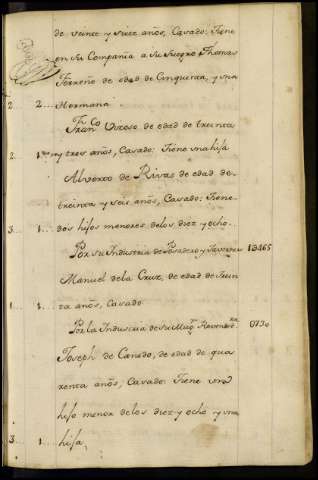 de veinte y siete años, Casado: Tiene
en su Compañia a su Suegro Thomas
Ferreño de edad de Cinquenta, y una
2 2... Hermana
Fran.co Otoso de edad de treinta
2 1... y tres años, Casado: Tiene una hija
Alverto de Rivas de edad de
treinta y seis años, Casado: Tiene
3 1... dos hijos menores delos diez y ocho
Por su Industria de Posadero y Tavernero 1䷀465
Manuel dela Cruz, de edad de trein
1 1... ta años, Casado
Por la Industria de su Mug.r
Joseph de Canedo, de edad de qua
renta años, Casado: Tiene un
hijo menor delos diez y ocho y una
3 1... hija,